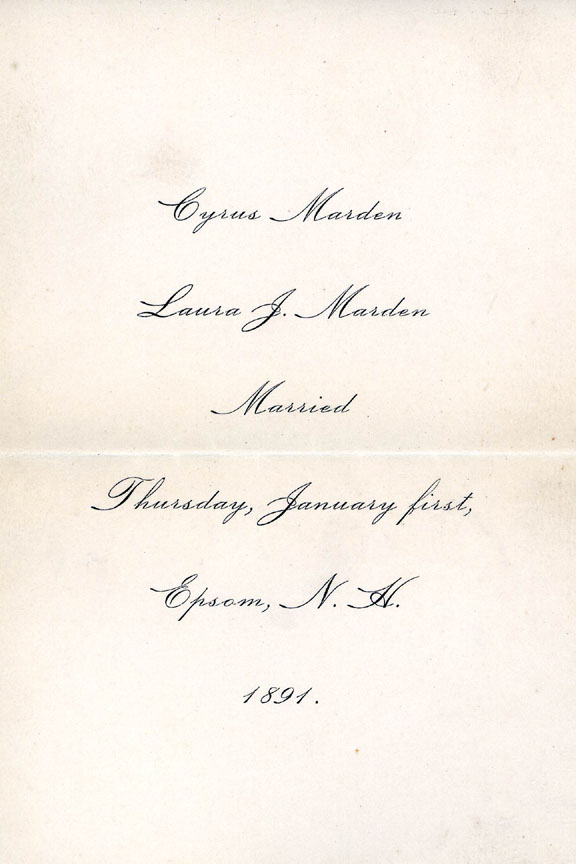 Cyrus Marden
Laura J. Marden
Married
Thursday, January first,
Epsom, N. H.
1891.